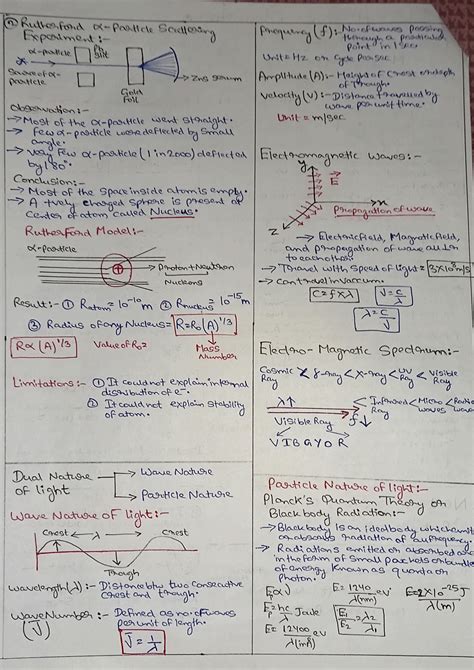 Rutherford α-Particle Scattering
Experiment:-
α-particle
Pb
Slit
Source of α-
particle
Gold
Foil
Zns
Observation:-
→ Most of the α-particle went straight.
→ Few α-particle were deflected by small
angle.
→ Very Few α-particle (1 in 2000) deflected
by 180°
Conclusion:-
→ Most of the space inside atom is empty.
→ A +vely charged sphere is present at
Center of atom called Nucleus.
Rutherford Model:-
α-particle
Proton + Neutron
Nucleons
Result:- ① Ratom = 10⁻¹⁰ m ② Rnucleus = 10⁻¹⁵ m
③ Radius of any Nucleus = R=R₀(A)^1/3
R∝(A)^1/3
Value of R₀ =
Mass
Number
Limitations:- ① It could not explain internal
distribution of e⁻.
② It could not explain stability
of atom.
Dual Nature
of light
→ Wave Nature
→ Particle Nature
Wave Nature of Light:-
Crest
λ
Crest
Though
Wavelength(λ):- Distance btw two Consecutive
Crest and trough.
Wave Number:- Defined as no. of waves
(ν̄)
per unit of length.
ν̄ = 1/λ
Frequency(f):- No. of waves passing
through a particular
point in 1 sec
Unit = Hz or Cycle per sec
Amplitude(A):- Height of Crest or depth
of Though.
Velocity(v):- Distance travelled by
wave per unit time.
Unit = m/sec
Electromagnetic Waves:-
y
E
x
Propagation of wave
z
→ Electric field, Magnetic field,
and propagation of wave all ⊥ r
to each other
→ Travel with Speed of light = 3×10⁸ m/s
→ Can travel in vaccum.
C=f×λ
ν=C/λ
λ=C/ν
Electro-Magnetic Spectrum:-
Cosmic < γ-ray < x-ray < UV < Visible
Ray
Ray
Ray
λ↑
< Infrared < Micro < Radio
Ray
waves
waves
Visible Ray
f↓
V I B G Y O R
Particle Nature of light:-
Planck's Quantum Theory or
Black body Radiation:-
→ Black body is an ideal body which emit
or absorbs radiation of all frequency.
→ Radiations emitted or absorbed are
in the form of Small packets or bundles
of energy known as quanta or
Photon.
E∝ν
E=1240/λ(nm) eV
E=2×10⁻²⁵/λ(m) J
E=hc/λ Joule
E=12400/λ(Å) eV
E₁/E₂=λ₂/λ₁